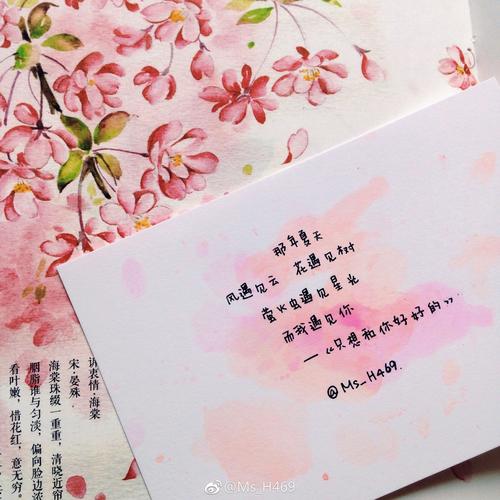 那年夏天
风遇见云 花遇见树
萤火虫遇见星光
而我遇见你
—《只想和你好好的》
@Ms_H469.
诉衷情·海棠
宋·晏殊
海棠珠缀一重重，清晓近帘
胭脂谁与匀淡，偏向脸边浓
看叶嫩，惜花红，意无穷。
@Ms_H469